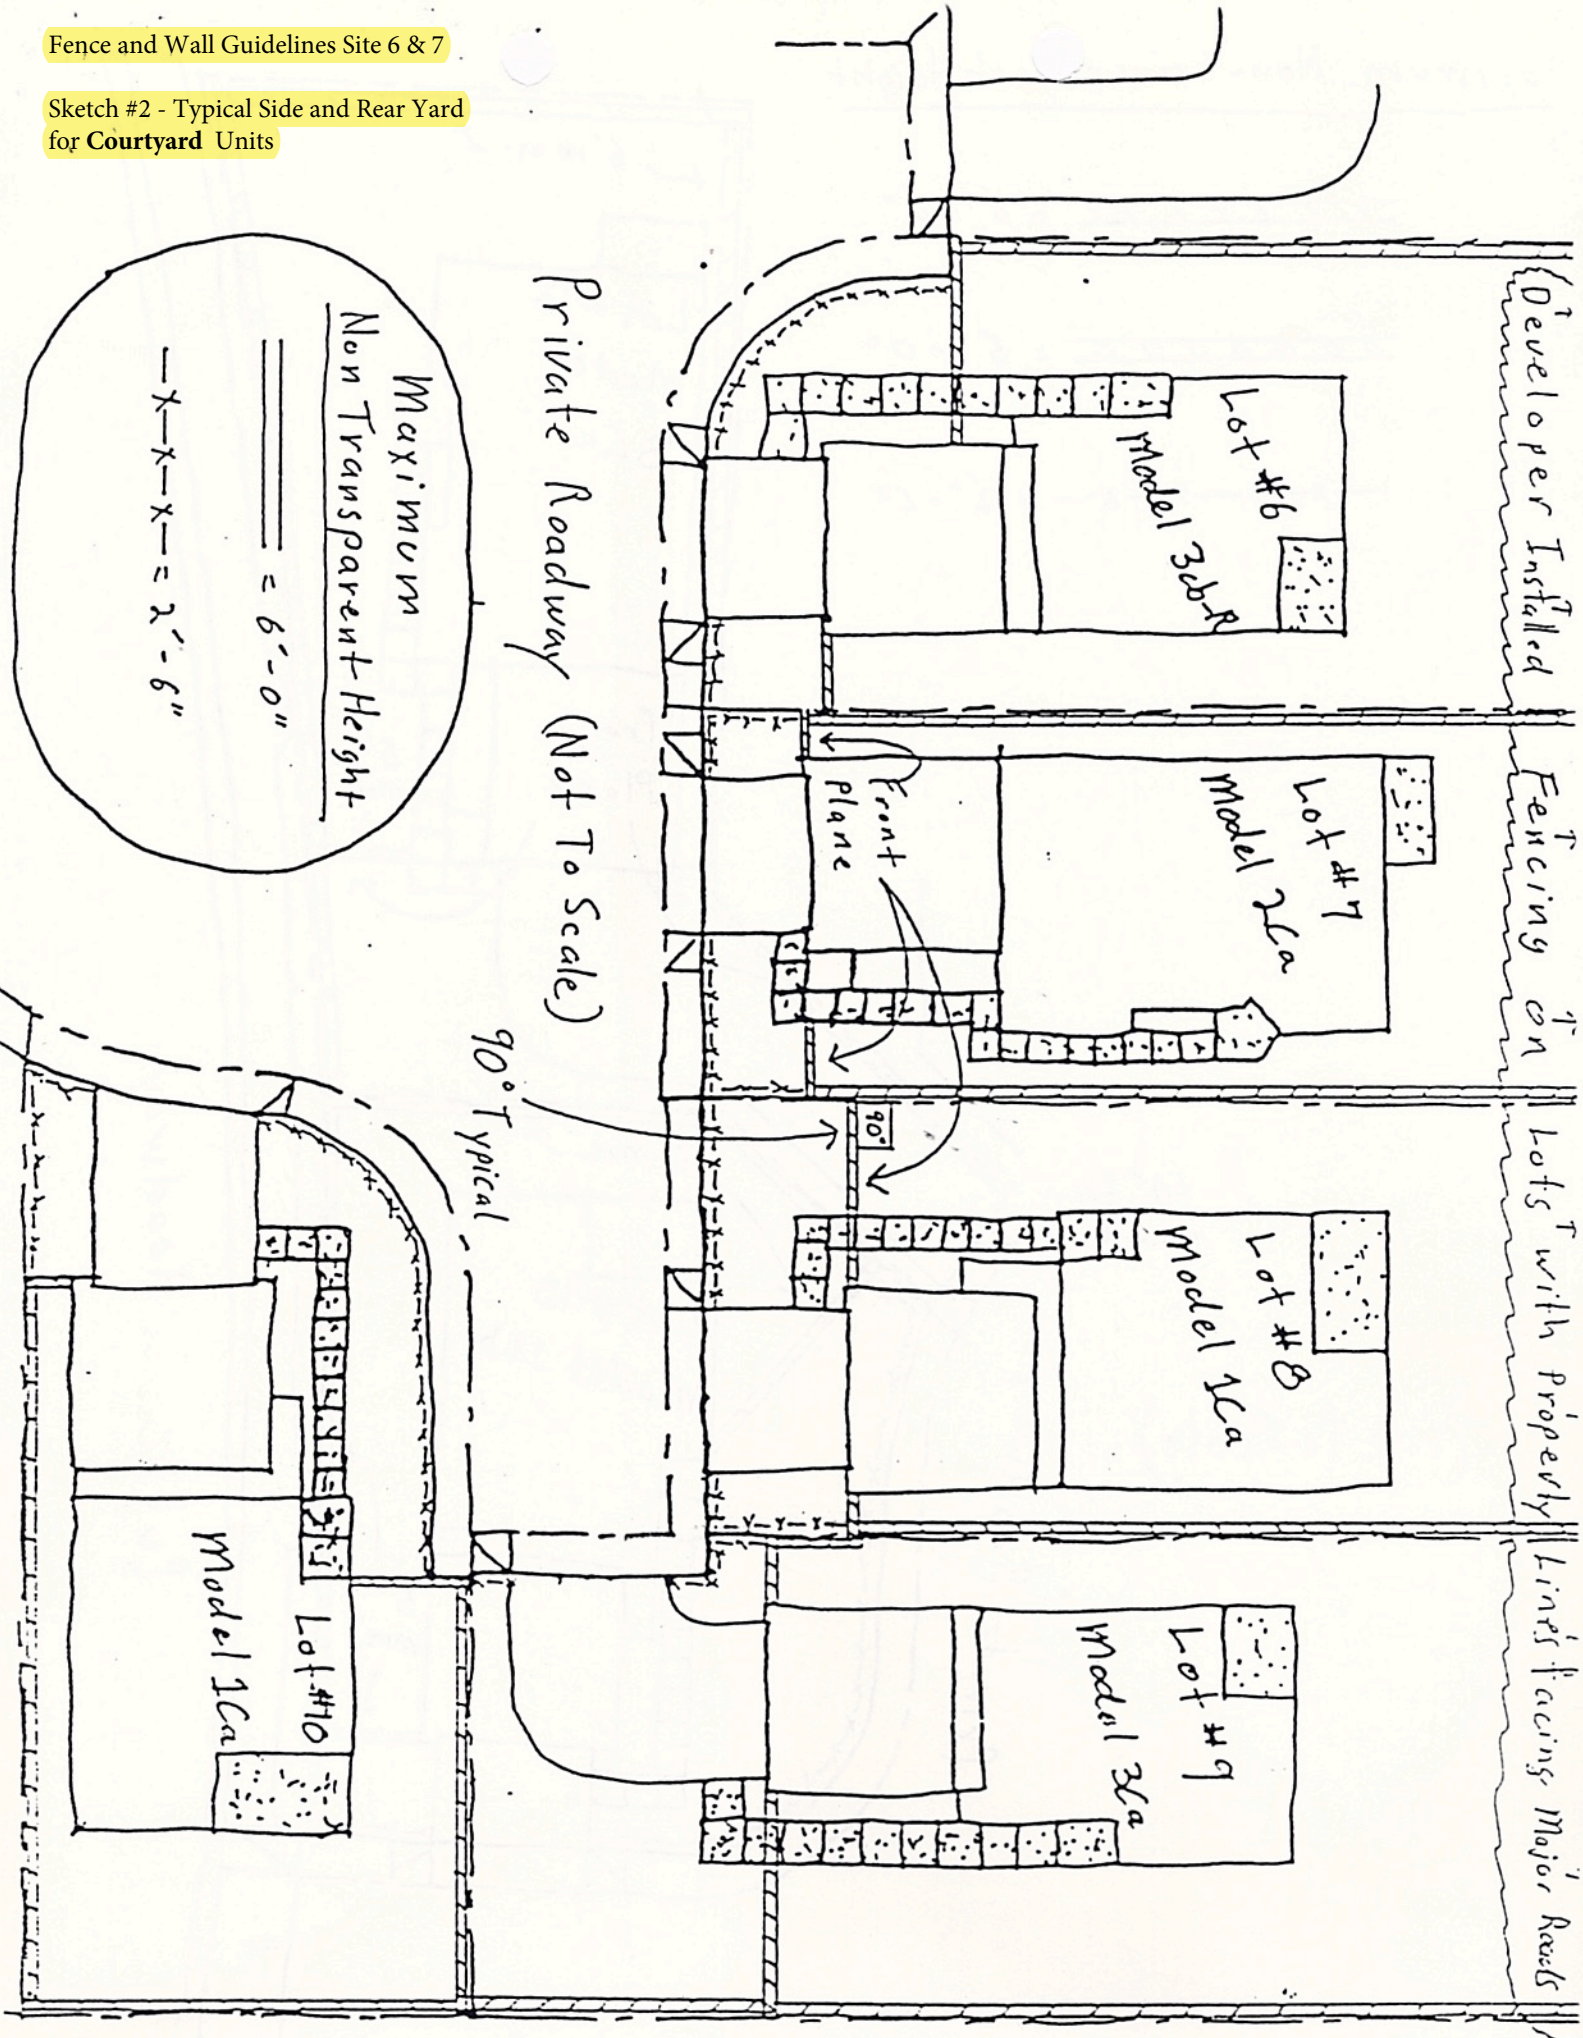 Fence and Wall Guidelines Site 6 & 7
Sketch #2 - Typical Side and Rear Yard
for Courtyard Units
(Developer Installed Fencing on Lots with Property Lines Facing Major Roads
Lot #6
Model 3cb-R
Lot #7
Model 2Ca
Lot #8
Model 1Ca
Lot #9
Model 3Ca
Front
plane
90°
Private Roadway (Not To Scale)
90° Typical
Maximum
Non Transparent Height
= 6'-0"
-x-x-x- = 2'-6"
Lot #10
Model 1Ca